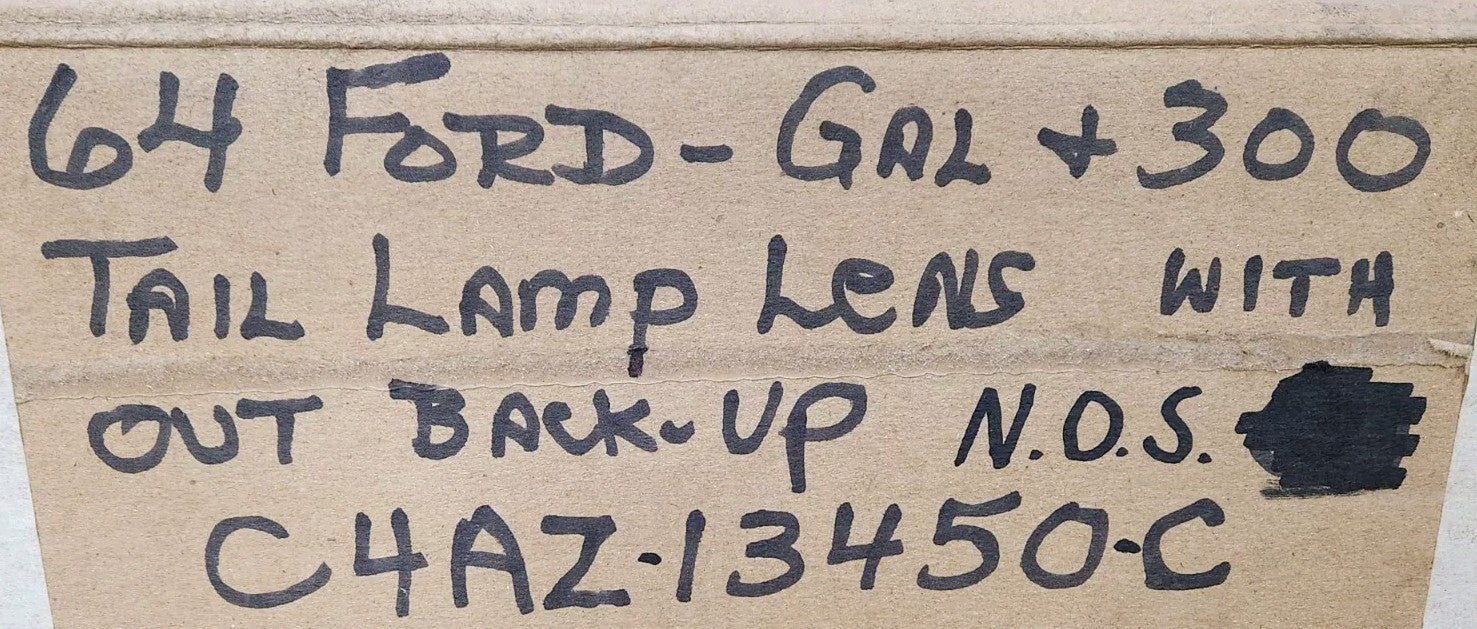 64 FORD - GAL + 300
TAIL LAMP LENS WITH
OUT BACK-UP N.O.S.
C4AZ-13450-C